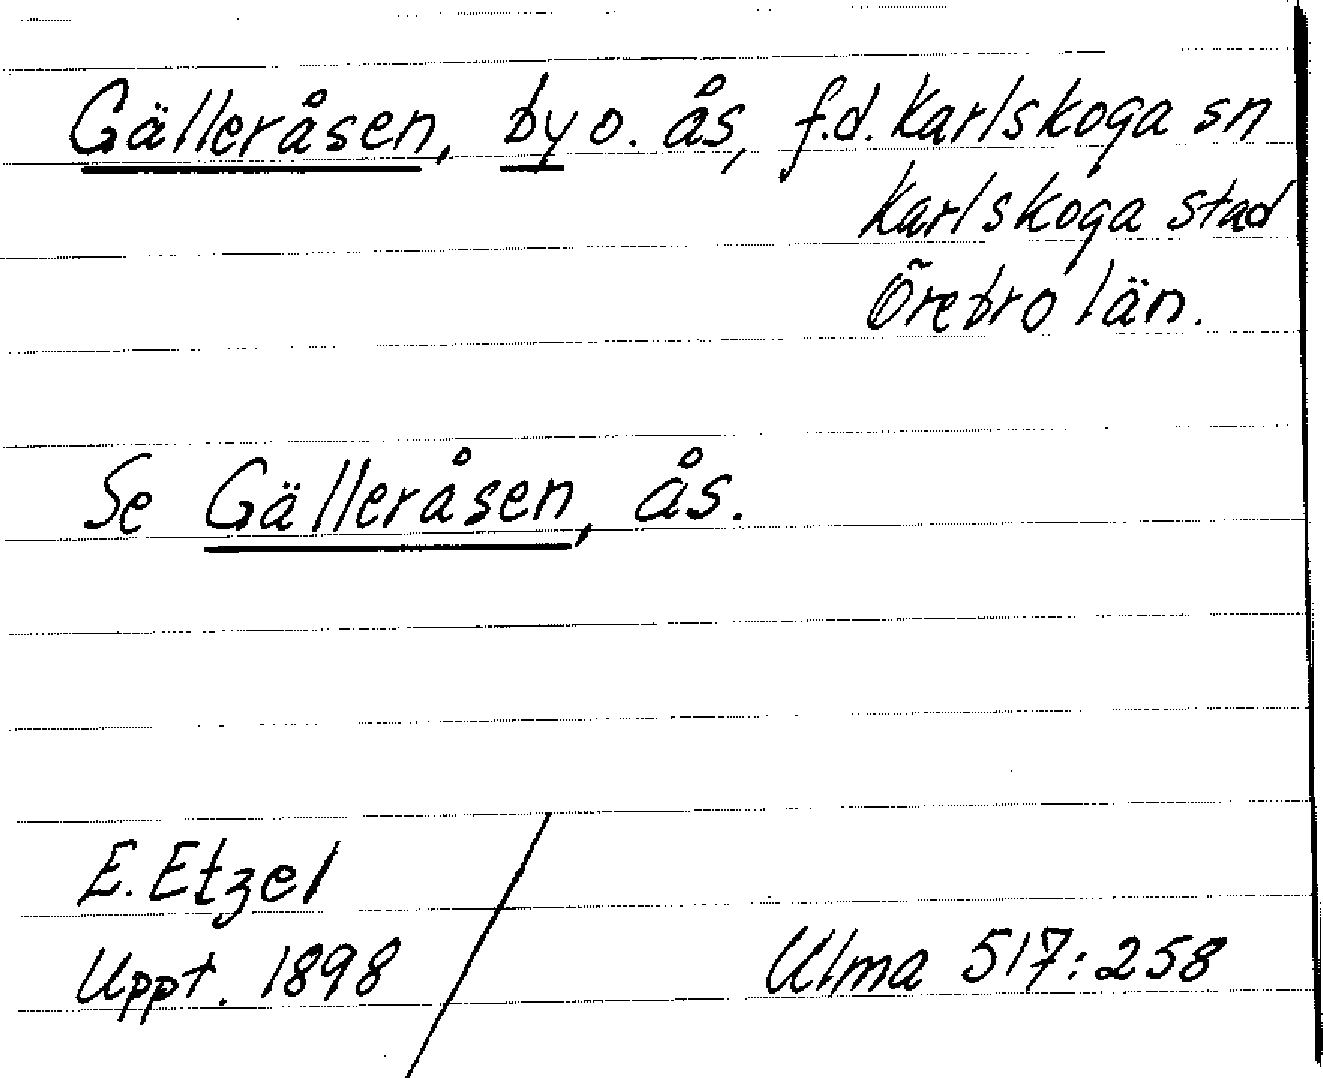 Gälleråsen, by o. ås, f.d. Karlskoga sn
Karlskoga stad
Örebro län.
Se Gälleråsen, ås.
E. Etzel
Uppt. 1898
Ulma 517:258